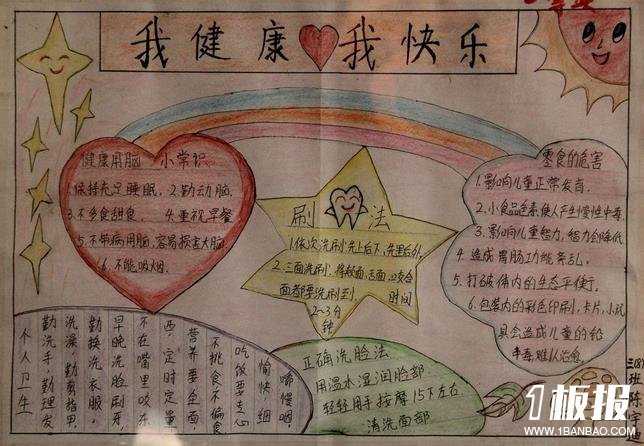 我健康我快乐
健康用脑 小常识
1.保持充足睡眠.2.勤动脑.
3.不多食甜食. 4.重视早餐
5.不带病用脑.容易损害大脑.
6.不能吸烟.
刷 法
1.依次洗刷,先上后下、先里后外.
2.三面洗刷,将敖面、舌面、咬合
面都要洗刷到. 时间
2~3分
钟
零食的危害
1.影响儿童正常发育.
2.小食品色素使人产生慢性中毒.
3.影响儿童智力,智力会降低
4.造成胃肠功能紊乱.
5.打破体内的生态平衡.
6.包装内的彩色印刷、卡片、小玩
具会造成儿童的铅
中毒难以治愈
个人卫生
勤洗手,勤理发
洗澡,勤剪指甲
勤换洗衣服,
早晚洗脸刷牙
不在嘴里咬东
西,定时定量
营养要全面
不挑食不偏食
吃饭要专心
愉快细
嚼慢咽.
正确洗脸法
用温水湿润脸部
轻轻用手按摩15下左右
清洗面部
三(8)
班
陈
1板报
WWW.1BANBAO.COM